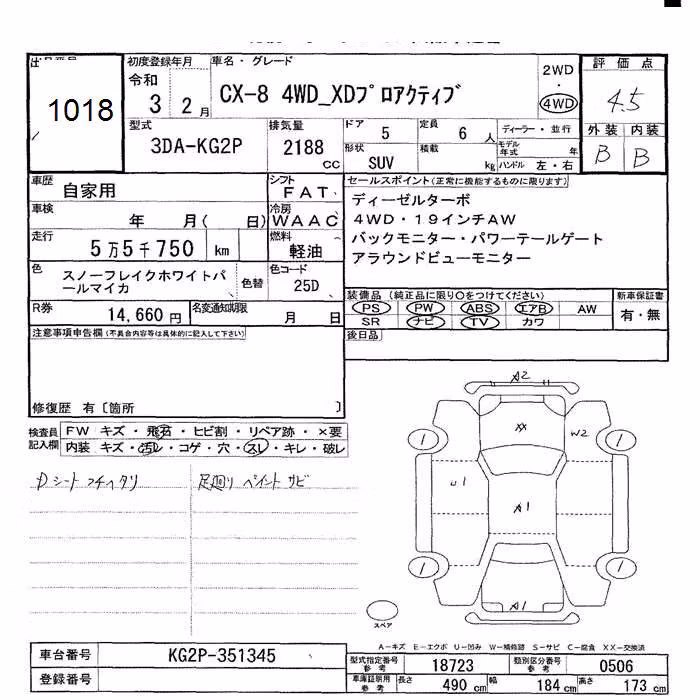 出品番号
1018
初度登録年月
令和
3 2月
車名・グレード
CX-8 4WD_XDプロアクティブ
2WD
・
4WD
評価点
4.5
外装 内装
B B
型式
3DA-KG2P
排気量
2188
cc
ドア
5
定員
6 人
ディーラー・並行
形状
SUV
積載
kg
モデル年式
年
ハンドル 左・右
車歴
自家用
シフト
FAT
車検
年 月( 日)
冷房
WAAC
走行
5万5千750 km
燃料
軽油
色
スノーフレイクホワイトパ
ールマイカ
色替
色コード
25D
R券
14,660円
名変通知期限
月 日
セールスポイント(正常に機能するものに限ります)
ディーゼルターボ
4WD・19インチAW
バックモニター・パワーテールゲート
アラウンドビューモニター
装備品(純正品に限り○をつけてください)
PS PW ABS エアB AW
SR ナビ TV カワ
新車保証書
有・無
後日品
注意事項申告欄(不具合内容等は具体的に記入して下さい)
修復歴 有〔箇所 〕
検査員
記入欄
FW キズ・飛石・ヒビ割・リペア跡・×要
内装 キズ・汚レ・コゲ・穴・スレ・キレ・破レ
Dシート フチヘタリ
足廻り ペイント サビ
A2
XX
W2
U1
A1
A1
1
1
1
1
スペア
A-キズ E-エクボ U-凹み W-補修跡 S-サビ C-腐食 XX-交換済
車台番号
KG2P-351345
登録番号
型式指定番号
参考
18723
類別区分番号
参考
0506
車庫証明用
参考
長さ
490 cm
幅
184 cm
高さ
173 cm